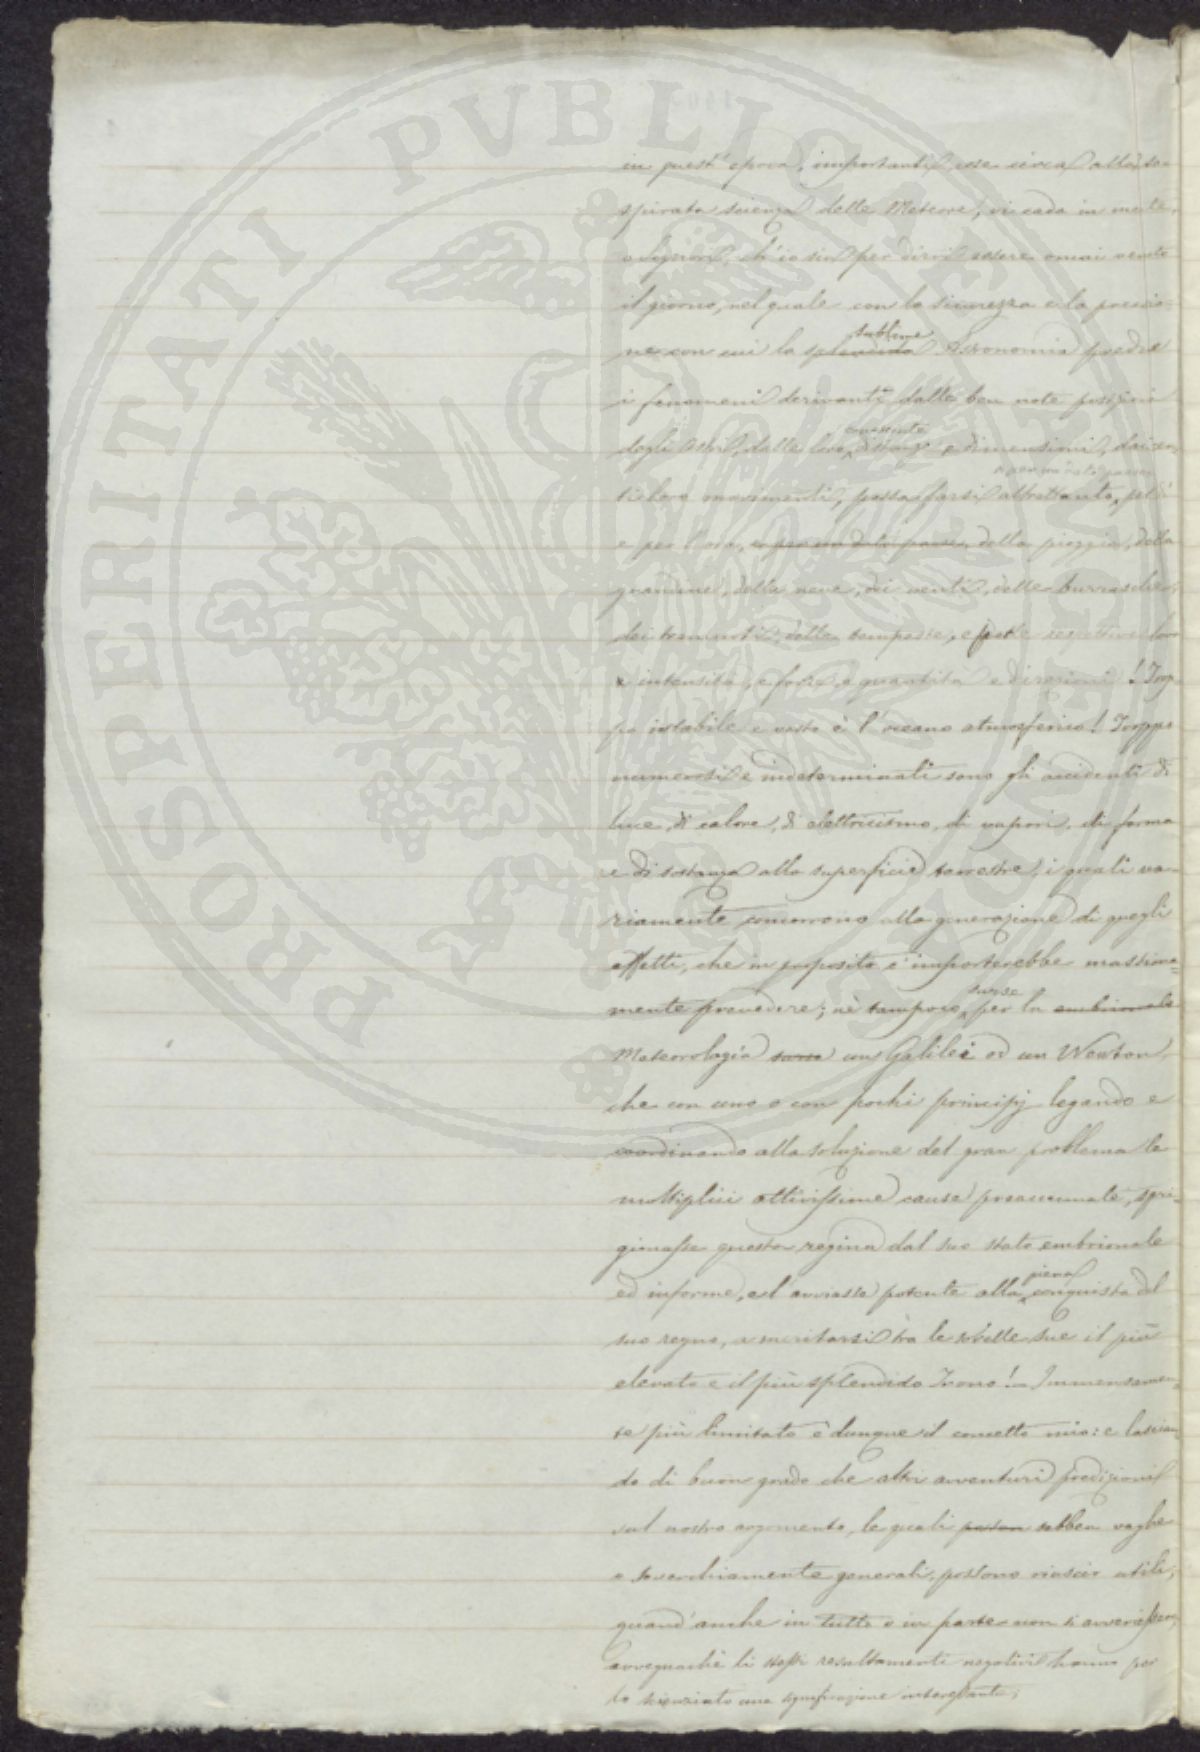 PROSPERITATI PUBLICAE AUGENDAE
in quest' epoca, importanti cose circa alla so-
spirata scienza delle Meteore, vi cada in mente,
o Signori, ch'io sia per dirvi essere omai venuto
il giorno, nel quale con la sicurezza e la precisio-
sublime
ne, con cui la splendida Astronomia predice
i fenomeni derivanti dalle ben note posizioni
degli Astri, dalle loro distanze e dimensioni, dai
e per un dato paese
loro movimenti, possa farsi altrettanto, pel dì
e per l'ora, e per un dato paese, della pioggia, della
grandine, della neve, dei venti, delle burrasche,
dei tremuoti, delle tempeste, e per le respettive loro
intensità, e forze, e quantità e direzioni! Trop-
po instabile e vasto è l'oceano atmosferico! Troppo
numerosi e indeterminati sono gli accidenti di
luce, di calore, di elettricismo, di vapori, di forma
e di sostanza alla superficie terrestre, i quali va-
riamente concorrono alla generazione di quegli
effetti, che in proposito c'importerebbe massima-
surse
mente prevedere; nè tampoco per la embrionale
Meteorologia surse un Galilei od un Newton,
che con uno o con pochi principj legando e
coordinando alla soluzione del gran problema le
multiplici attivissime cause preaccennate, spri-
gionasse questa regina dal suo stato embrionale
piena
ed informe, e l'avviasse potente alla conquista del
suo regno, a meritarsi tra le sorelle sue il più
elevato e il più splendido Trono! – Immensamen-
te più limitato è dunque il concetto mio: e lascian-
do di buon grado che altri avventuri predizioni
sul nostro argomento, le quali sebben vaghe
e soverchiamente generali, possono riuscir utili,
quand'anche in tutto o in parte non si avverassero,
avvegnachè li stessi resultamenti negativi hanno per
lo scienziato una significazione interessante;